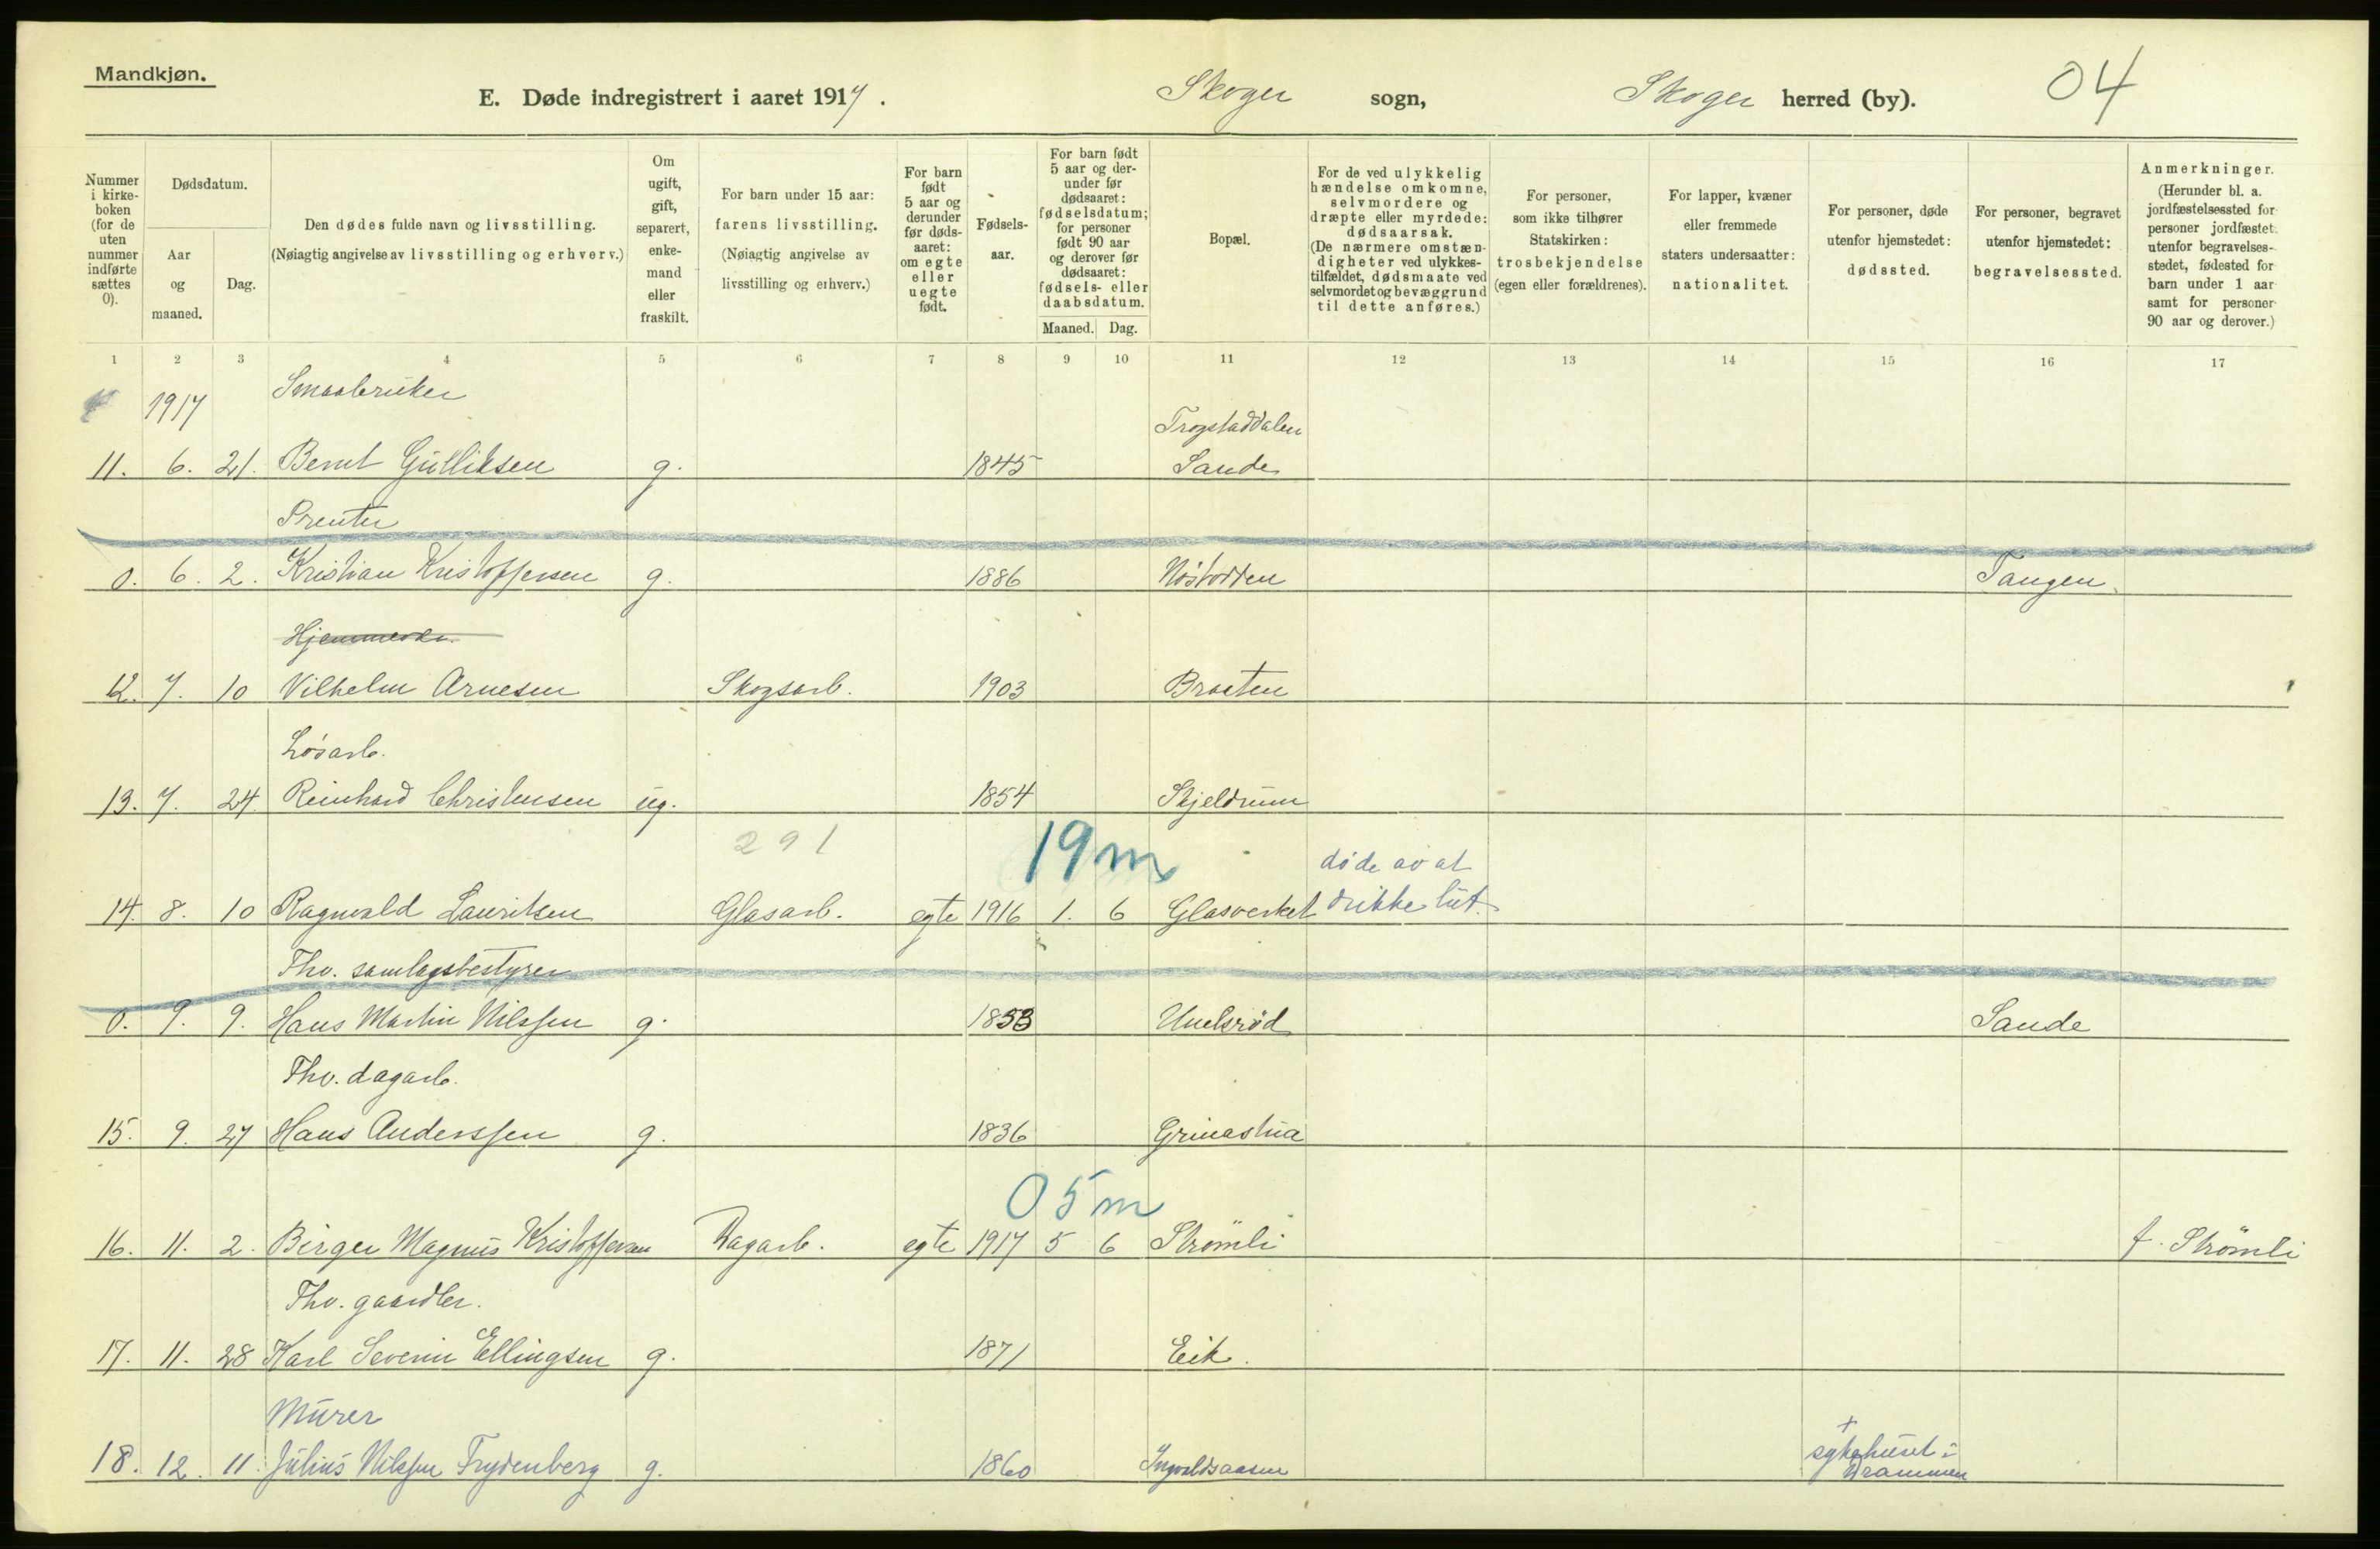 Mandkjøn.
E. Døde indregistrert i aaret 1917. Skoger sogn, Skoger herred (by). 04
Nummer i kirke-boken (for de uten nummer indførte sættes 0).
Dødsdatum.
Aar og maaned.
Dag.
Den dødes fulde navn og livsstilling.
(Nøiagtig angivelse av livsstilling og erhverv.)
Om ugift, gift, separert, enke-mand eller fraskilt.
For barn under 15 aar: farens livsstilling. (Nøiagtig angivelse av livsstilling og erhverv.)
For barn født 5 aar og derunder før døds-aaret: om egte eller uegte født.
Fødsels-aar.
For barn født 5 aar og der-under før dødsaaret: fødselsdatum; for personer født 90 aar og derover før dødsaaret: fødsels- eller daabsdatum.
Maaned. Dag.
Bopæl.
For de ved ulykkelig hændelse omkomne, selvmordere og dræpte eller myrdede: dødsaarsak. (De nærmere omstæn-digheter ved ulykkes-tilfældet, dødsmaate ved selvmordet og bevæggrund til dette anføres.)
For personer, som ikke tilhører Statskirken: trosbekjendelse (egen eller forældrenes).
For lapper, kvæner eller fremmede staters undersaatter: nationalitet.
For personer, døde utenfor hjemstedet: dødssted.
For personer, begravet utenfor hjemstedet: begravelsessted.
Anmerkninger. (Herunder bl. a. jordfæstelsessted for personer jordfæstet utenfor begravelses-stedet, fødested for barn under 1 aar samt for personer 90 aar og derover.)
1 2 3 4 5 6 7 8 9 10 11 12 13 14 15 16 17
1917 Smaabruker
Trogstaddalen
11. 6. 21. Bernt Gulliksen g. 1845 Sande
Prenter
0. 6. 2. Kristian Kristoffersen g. 1886 Nøstodden Tangen
Hjemmevær.
12. 7. 10 Vilhelm Arnesen Skogsarb. 1903 Braaten
Løsarb.
13. 7. 24 Reinhard Christensen ug. 1854 Skjeldrum
291 19 m
døde av at
14. 8. 10 Ragnvald Lauritsen Glasarb. egte 1916 1. 6 Glasverket drikke lut.
Fhv. samlagsbestyrer
0. 9. 9. Hans Martin Nilssen g. 1853 Unelsrød Sande
Fhv. dagarb.
15. 9. 27 Hans Anderssen g. 1836 Grinastua
05 m
16. 11. 2. Birger Magnus Kristoffersen Dagarb. egte 1917 5 6 Strømli f. Strømli
Fhv. gaardbr.
17. 11. 28 Karl Severin Ellingsen g. 1871 Eik.
Murer
+ sykehuset i
18. 12. 11. Julius Nilssen Frydenberg g. 1860 Ingvaldsaasen Drammen